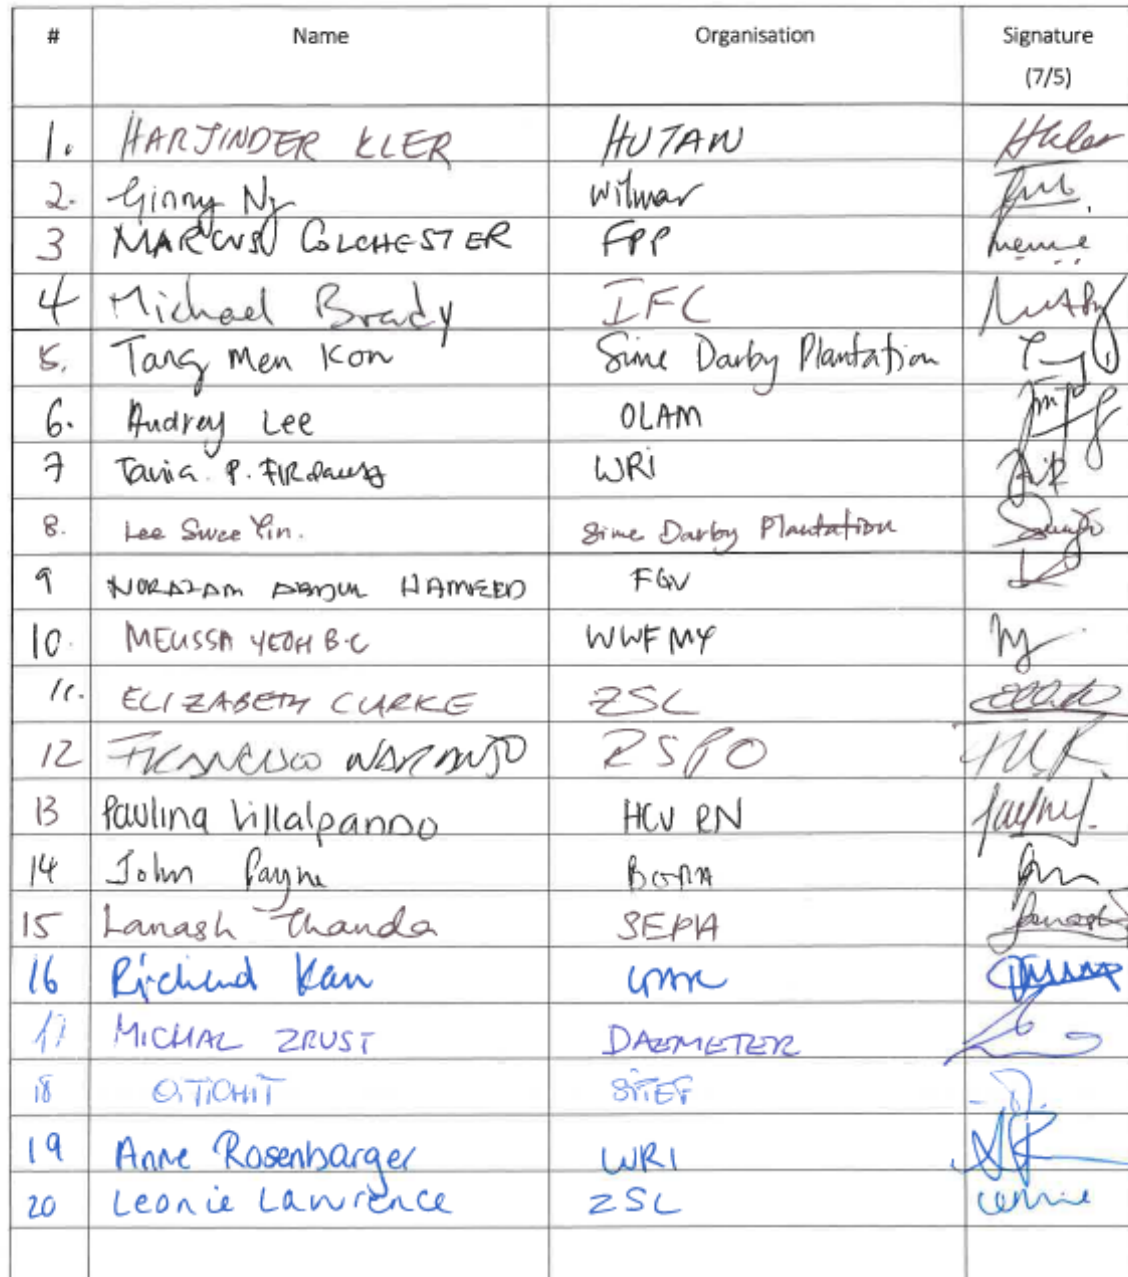 # Name Organisation Signature
(7/5)
1. HARJINDER KLER HUTAN
2. Ginny Ng Wilmar
3 MARCUS COLCHESTER FPP
4 Michael Brady IFC
5. Tang Men Kon Sime Darby Plantation
6. Audrey Lee OLAM
7 Tania P. FIRdausy WRI
8. Lee Swee Yin. Sime Darby Plantation
9 NORAZAM ABDUL HAMEED FGV
10. MELISSA YEOH B.C WWF MY
11. ELIZABETH CLARKE ZSL
12 FRANCISCO NARANJO RSPO
13 Paulina Villalpando HCV RN
14 John Payne BORA
15 Lanash Thanda SEPA
16 Richard Kan GAR
17 MICHAL ZRUST DAEMETER
18 O. TICHIT SIPEF
19 Anne Rosenbarger WRI
20 Leonie Lawrence ZSL